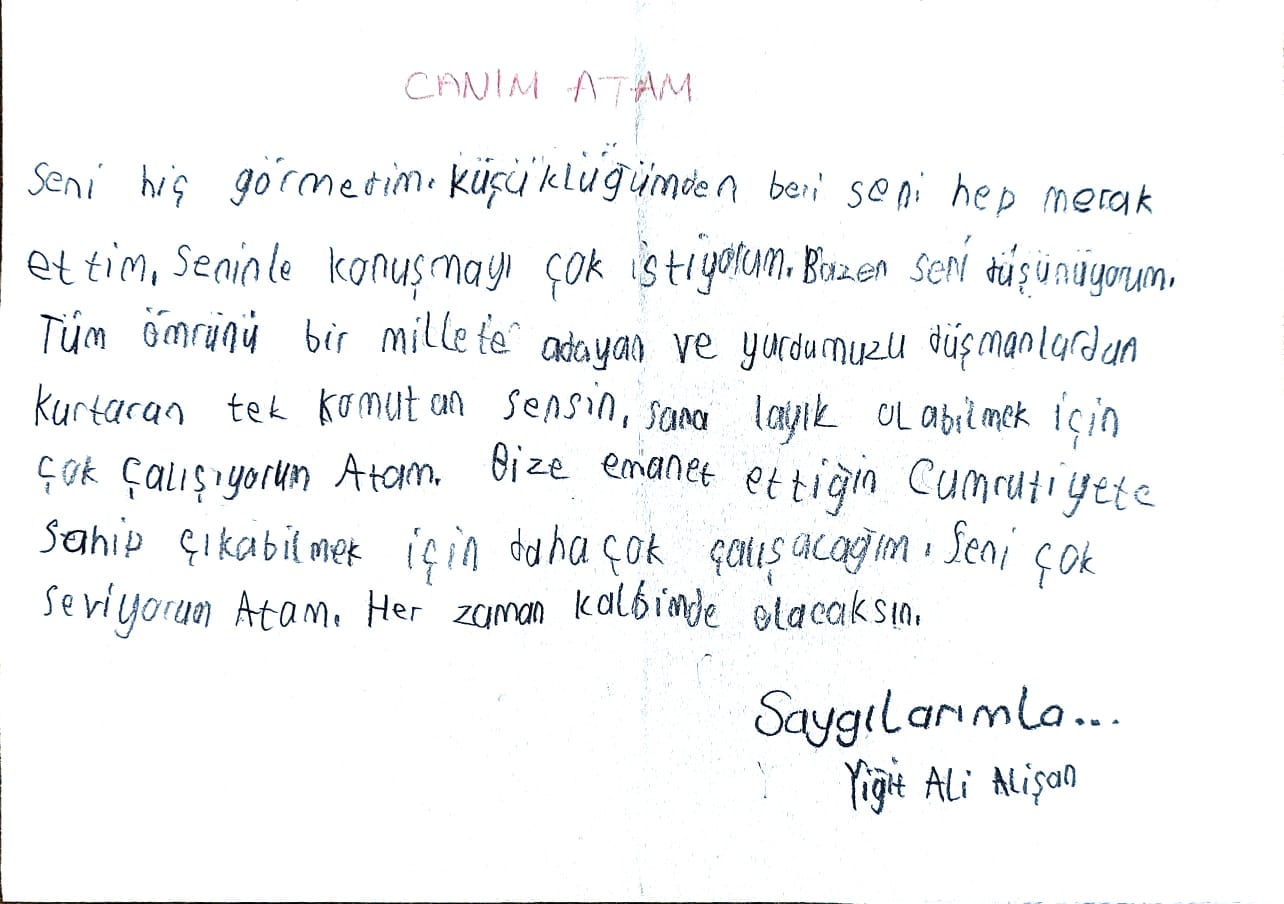 CANIM ATAM
Seni hiç görmedim. Küçüklüğümden beri seni hep merak
ettim, Seninle konuşmayı çok istiyorum. Bazen seni düşünüyorum.
Tüm ömrünü bir millete adayan ve yurdumuzu düşmanlardan
kurtaran tek komutan sensin, sana layık olabilmek için
çok çalışıyorum Atam. Bize emanet ettiğin Cumrutiyete
Sahip çıkabilmek için daha çok çalışacağım. Seni çok
Seviyorum Atam. Her zaman kalbimde olacaksın.
Saygılarımla...
Yiğit Ali Alişan